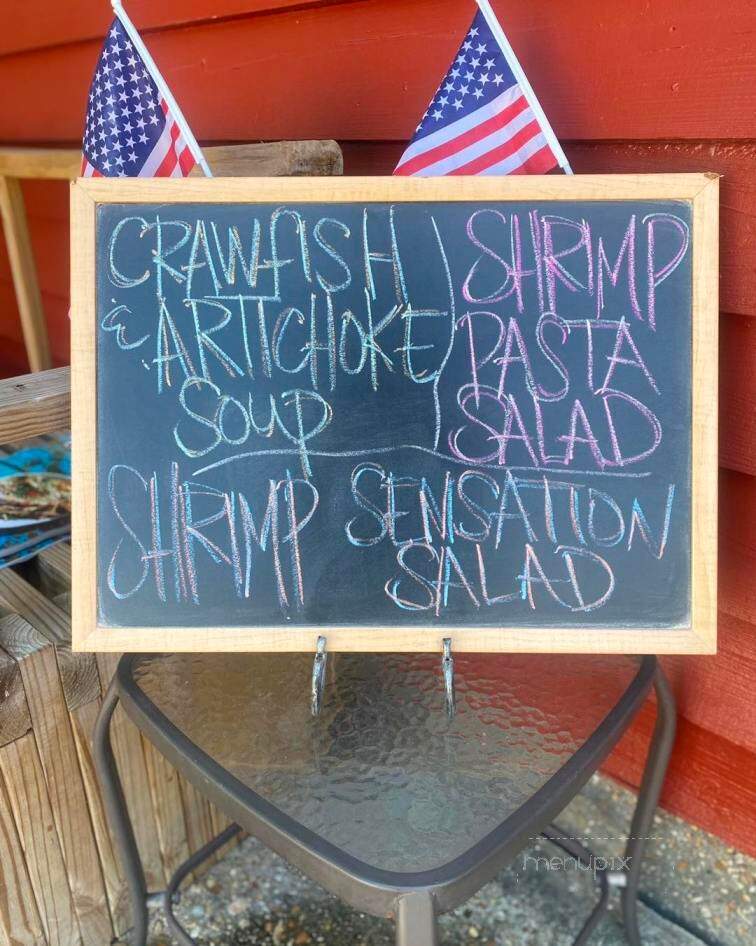 CRAWFISH
& ARTICHOKE
SOUP
SHRIMP
PASTA
SALAD
SHRIMP SENSATION
SALAD
menupix